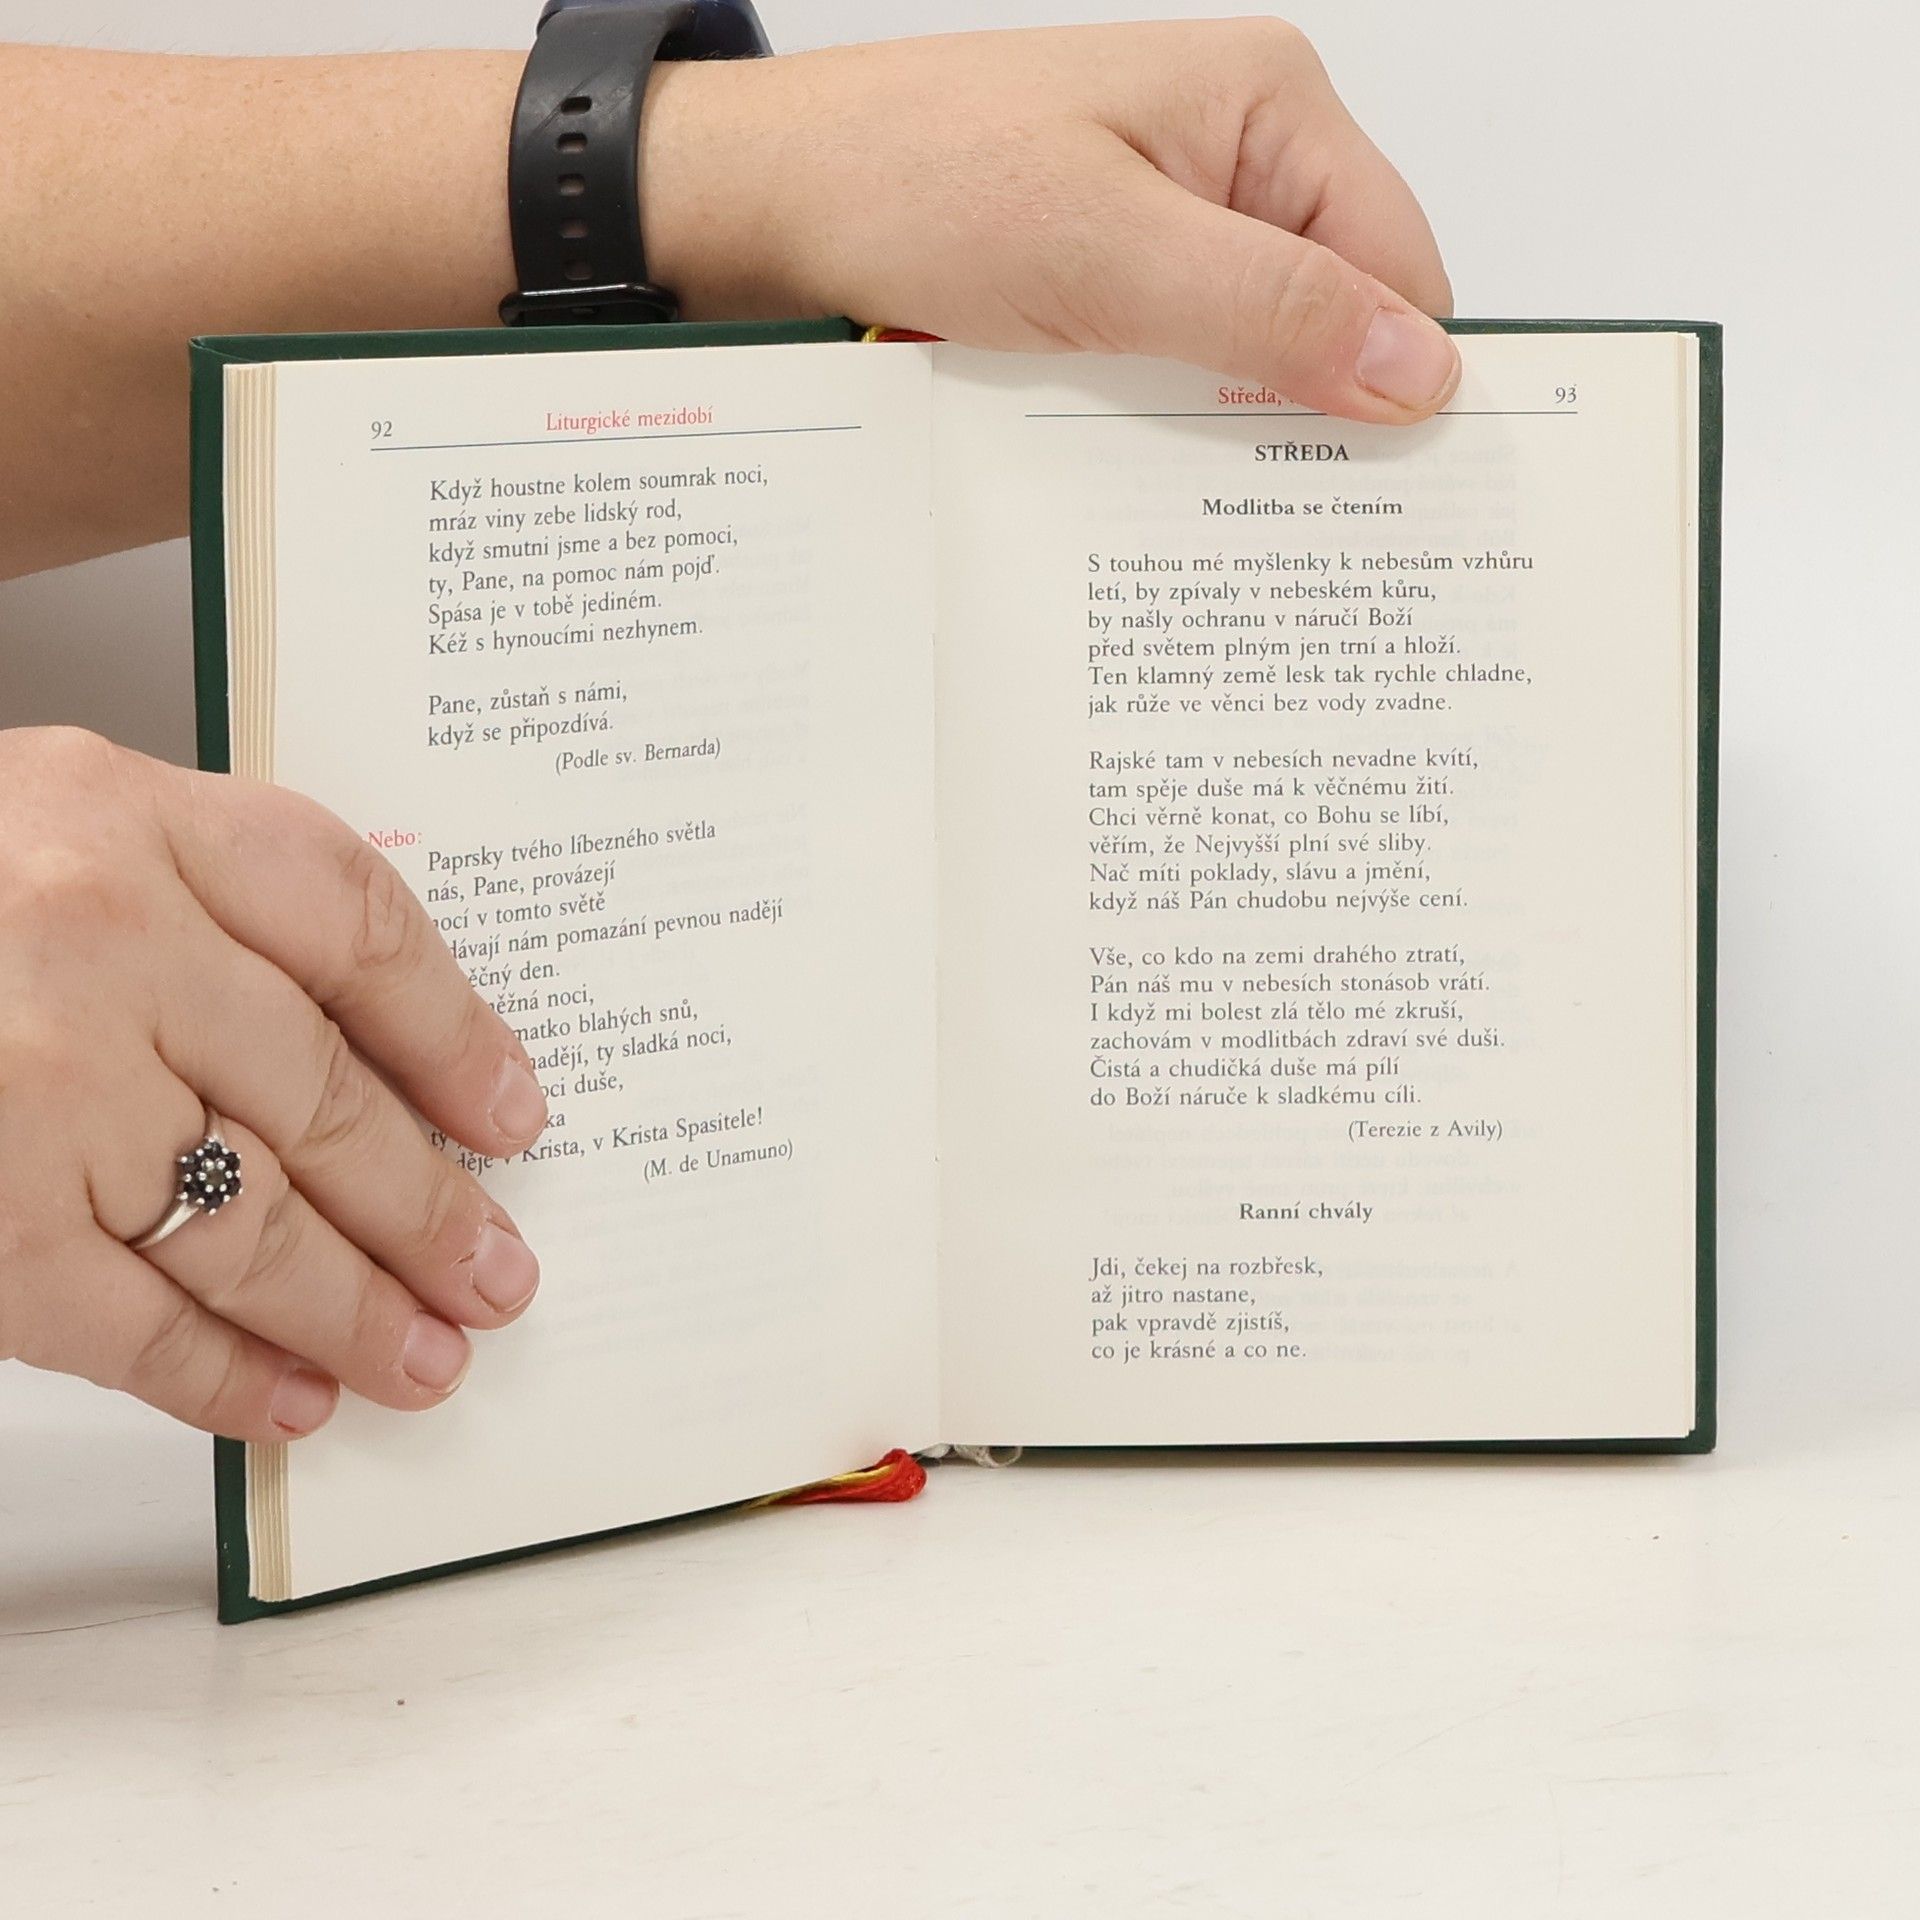 92 Liturgické mezidobí
Když houstne kolem soumrak noci,
mráz viny zebe lidský rod,
když smutni jsme a bez pomoci,
ty, Pane, na pomoc nám pojď.
Spása je v tobě jediném.
Kéž s hynoucími nezhynem.
Pane, zůstaň s námi,
když se připozdívá.
(Podle sv. Bernarda)
Nebo:
Paprsky tvého líbezného světla
nás, Pane, provázejí
v tomto světě
nám pomazání pevnou nadějí
den.
noci,
matko blahých snů,
ty sladká noci,
duše,
ty
v Krista, v Krista Spasitele!
(M. de Unamuno)
Středa, 93
STŘEDA
Modlitba se čtením
S touhou mé myšlenky k nebesům vzhůru
letí, by zpívaly v nebeském kůru,
by našly ochranu v náručí Boží
před světem plným jen trní a hloží.
Ten klamný země lesk tak rychle chladne,
jak růže ve věnci bez vody zvadne.
Rajské tam v nebesích nevadne kvítí,
tam spěje duše má k věčnému žití.
Chci věrně konat, co Bohu se líbí,
věřím, že Nejvyšší plní své sliby.
Nač míti poklady, slávu a jmění,
když náš Pán chudobu nejvýše cení.
Vše, co kdo na zemi drahého ztratí,
Pán náš mu v nebesích stonásob vrátí.
I když mi bolest zlá tělo mé zkruší,
zachovám v modlitbách zdraví své duši.
Čistá a chudičká duše má pílí
do Boží náruče k sladkému cíli.
(Terezie z Avily)
Ranní chvály
Jdi, čekej na rozbřesk,
až jitro nastane,
pak vpravdě zjistíš,
co je krásné a co ne.